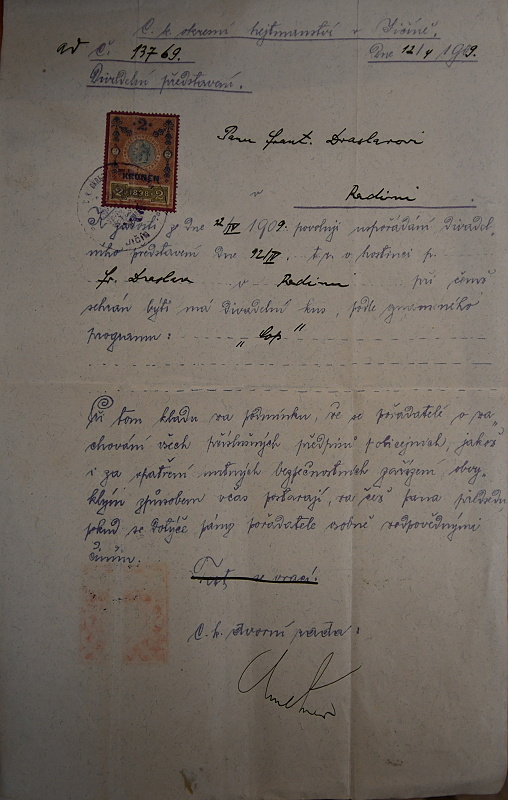 C. k. okresní hejtmanství v Jičíně.
ad Č. 13769. Dne 12/4 1909.
Divadelní představení.
Panu Frant. Draslarovi
v Radimi
2
KRONEN
2 1898 2
JIČÍN
K žádosti ze dne 12/IV 1909. povoluji uspořádání divadel-
ního představení dne /IV. t. r. v hostinci p.
Fr. Draslar v Radimi při čemž
sehrán býti má divadelní kus, podle
programu: „ Cop "
Při tom kladu za podmínku, že se pořadatelé o za-
chování všech příslušných předpisů policejních, jakož
i za opatření nutných bezpečnostních zařízení obvy-
klým způsobem včas postarají, za čež pana
pokud se dotýče pány pořadatele osobně zodpovědnými
činím.
se vrací.
C. k. dvorní rada: